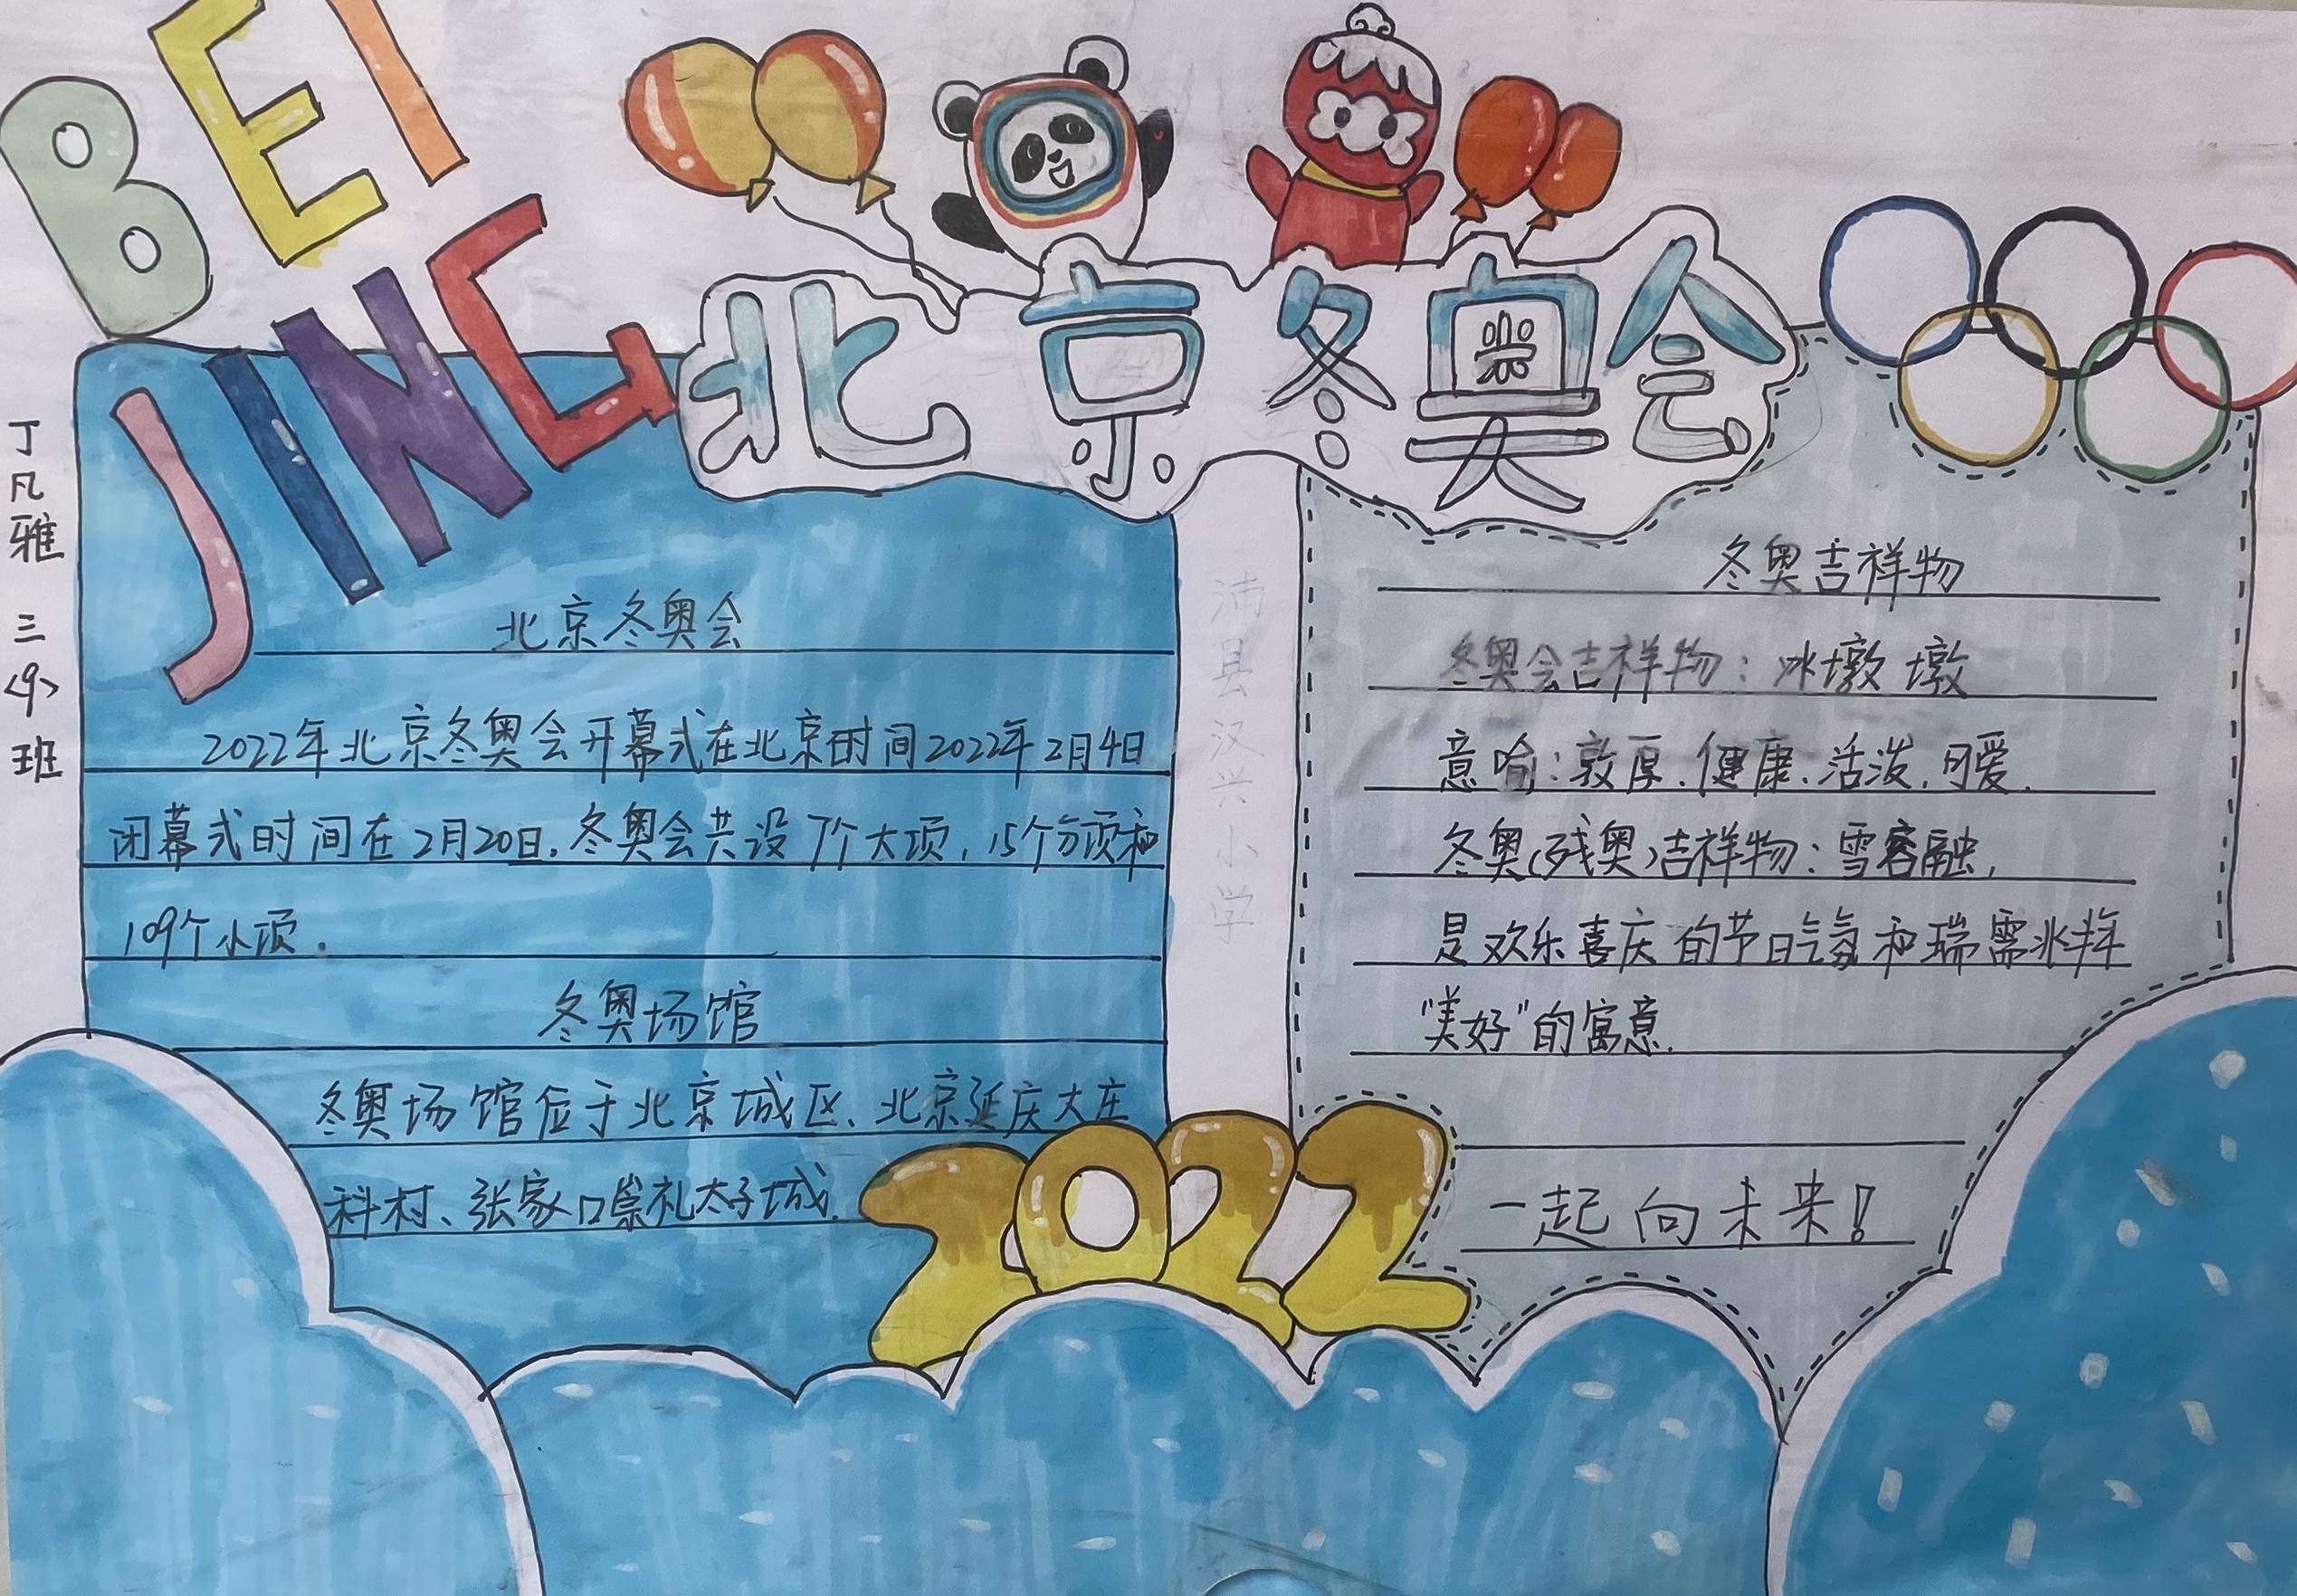 BEI
JING
北京冬奥会
丁凡雅 三<9>班
北京冬奥会
2022年北京冬奥会开幕式在北京时间2022年2月4日
闭幕式时间在2月20日.冬奥会共设7个大项,15个分项和
109个小项.
冬奥场馆
冬奥场馆位于北京城区、北京延庆大庄
科村、张家口崇礼太子城.
沛县汉兴小学
冬奥吉祥物
冬奥会吉祥物:冰墩墩
意喻:敦厚.健康.活泼.可爱.
冬奥(残奥)吉祥物:雪容融,
是欢乐喜庆的节日气氛和瑞雪兆丰年
"美好"的寓意.
一起向未来!
2022